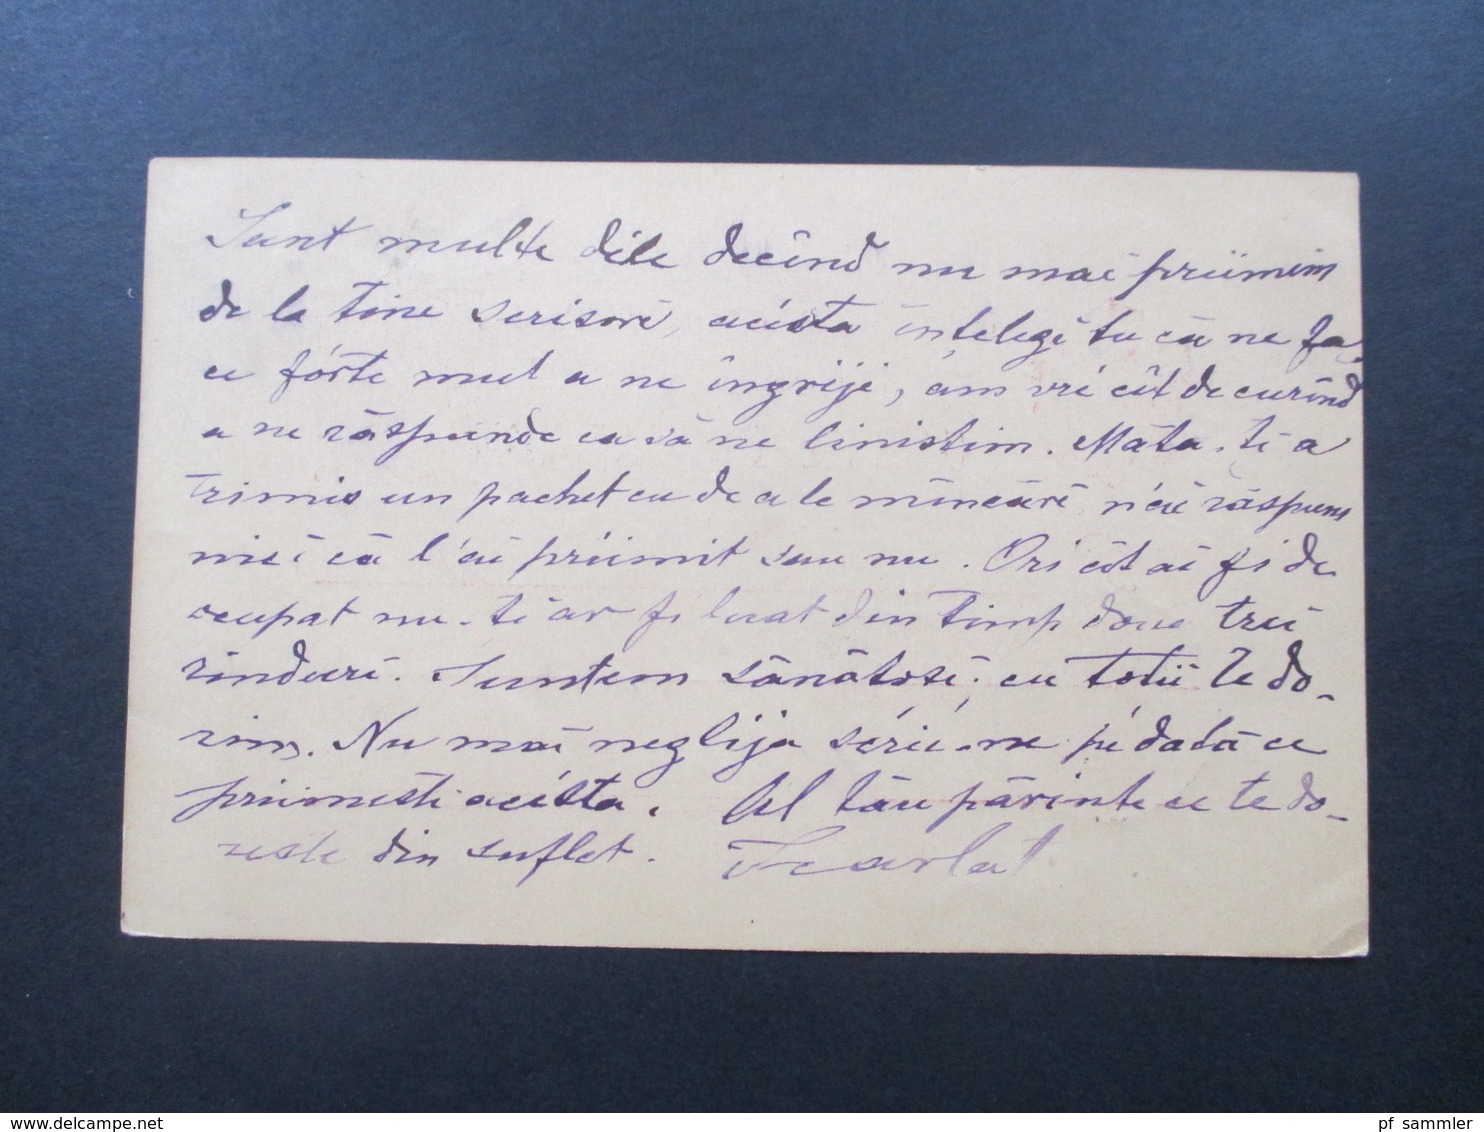 Sunt multe dile decând nu mai priimim
de la tine scrisori, acésta întelegi tu că ne fa,
ce fórte mult a ne îngriji, am vré cât de curând
a ne răspunde ca să ne linistim. Máta ti a
trimis un pachet cu de ale mâncări n'ai răspuns
nici că l'ai priimit sau nu. Ori cât ai fi de
ocupat nu-ti ar fi luat din timp doue trei
rânduri. Suntem sănătosi cu totii te do-
rim. Nu mai neglija scrie-ne pe dată ce
priimesti acésta. Al tău părinte ce te do-
reste din suflet. Scarlat
www.delcampe.net
pf_sammler